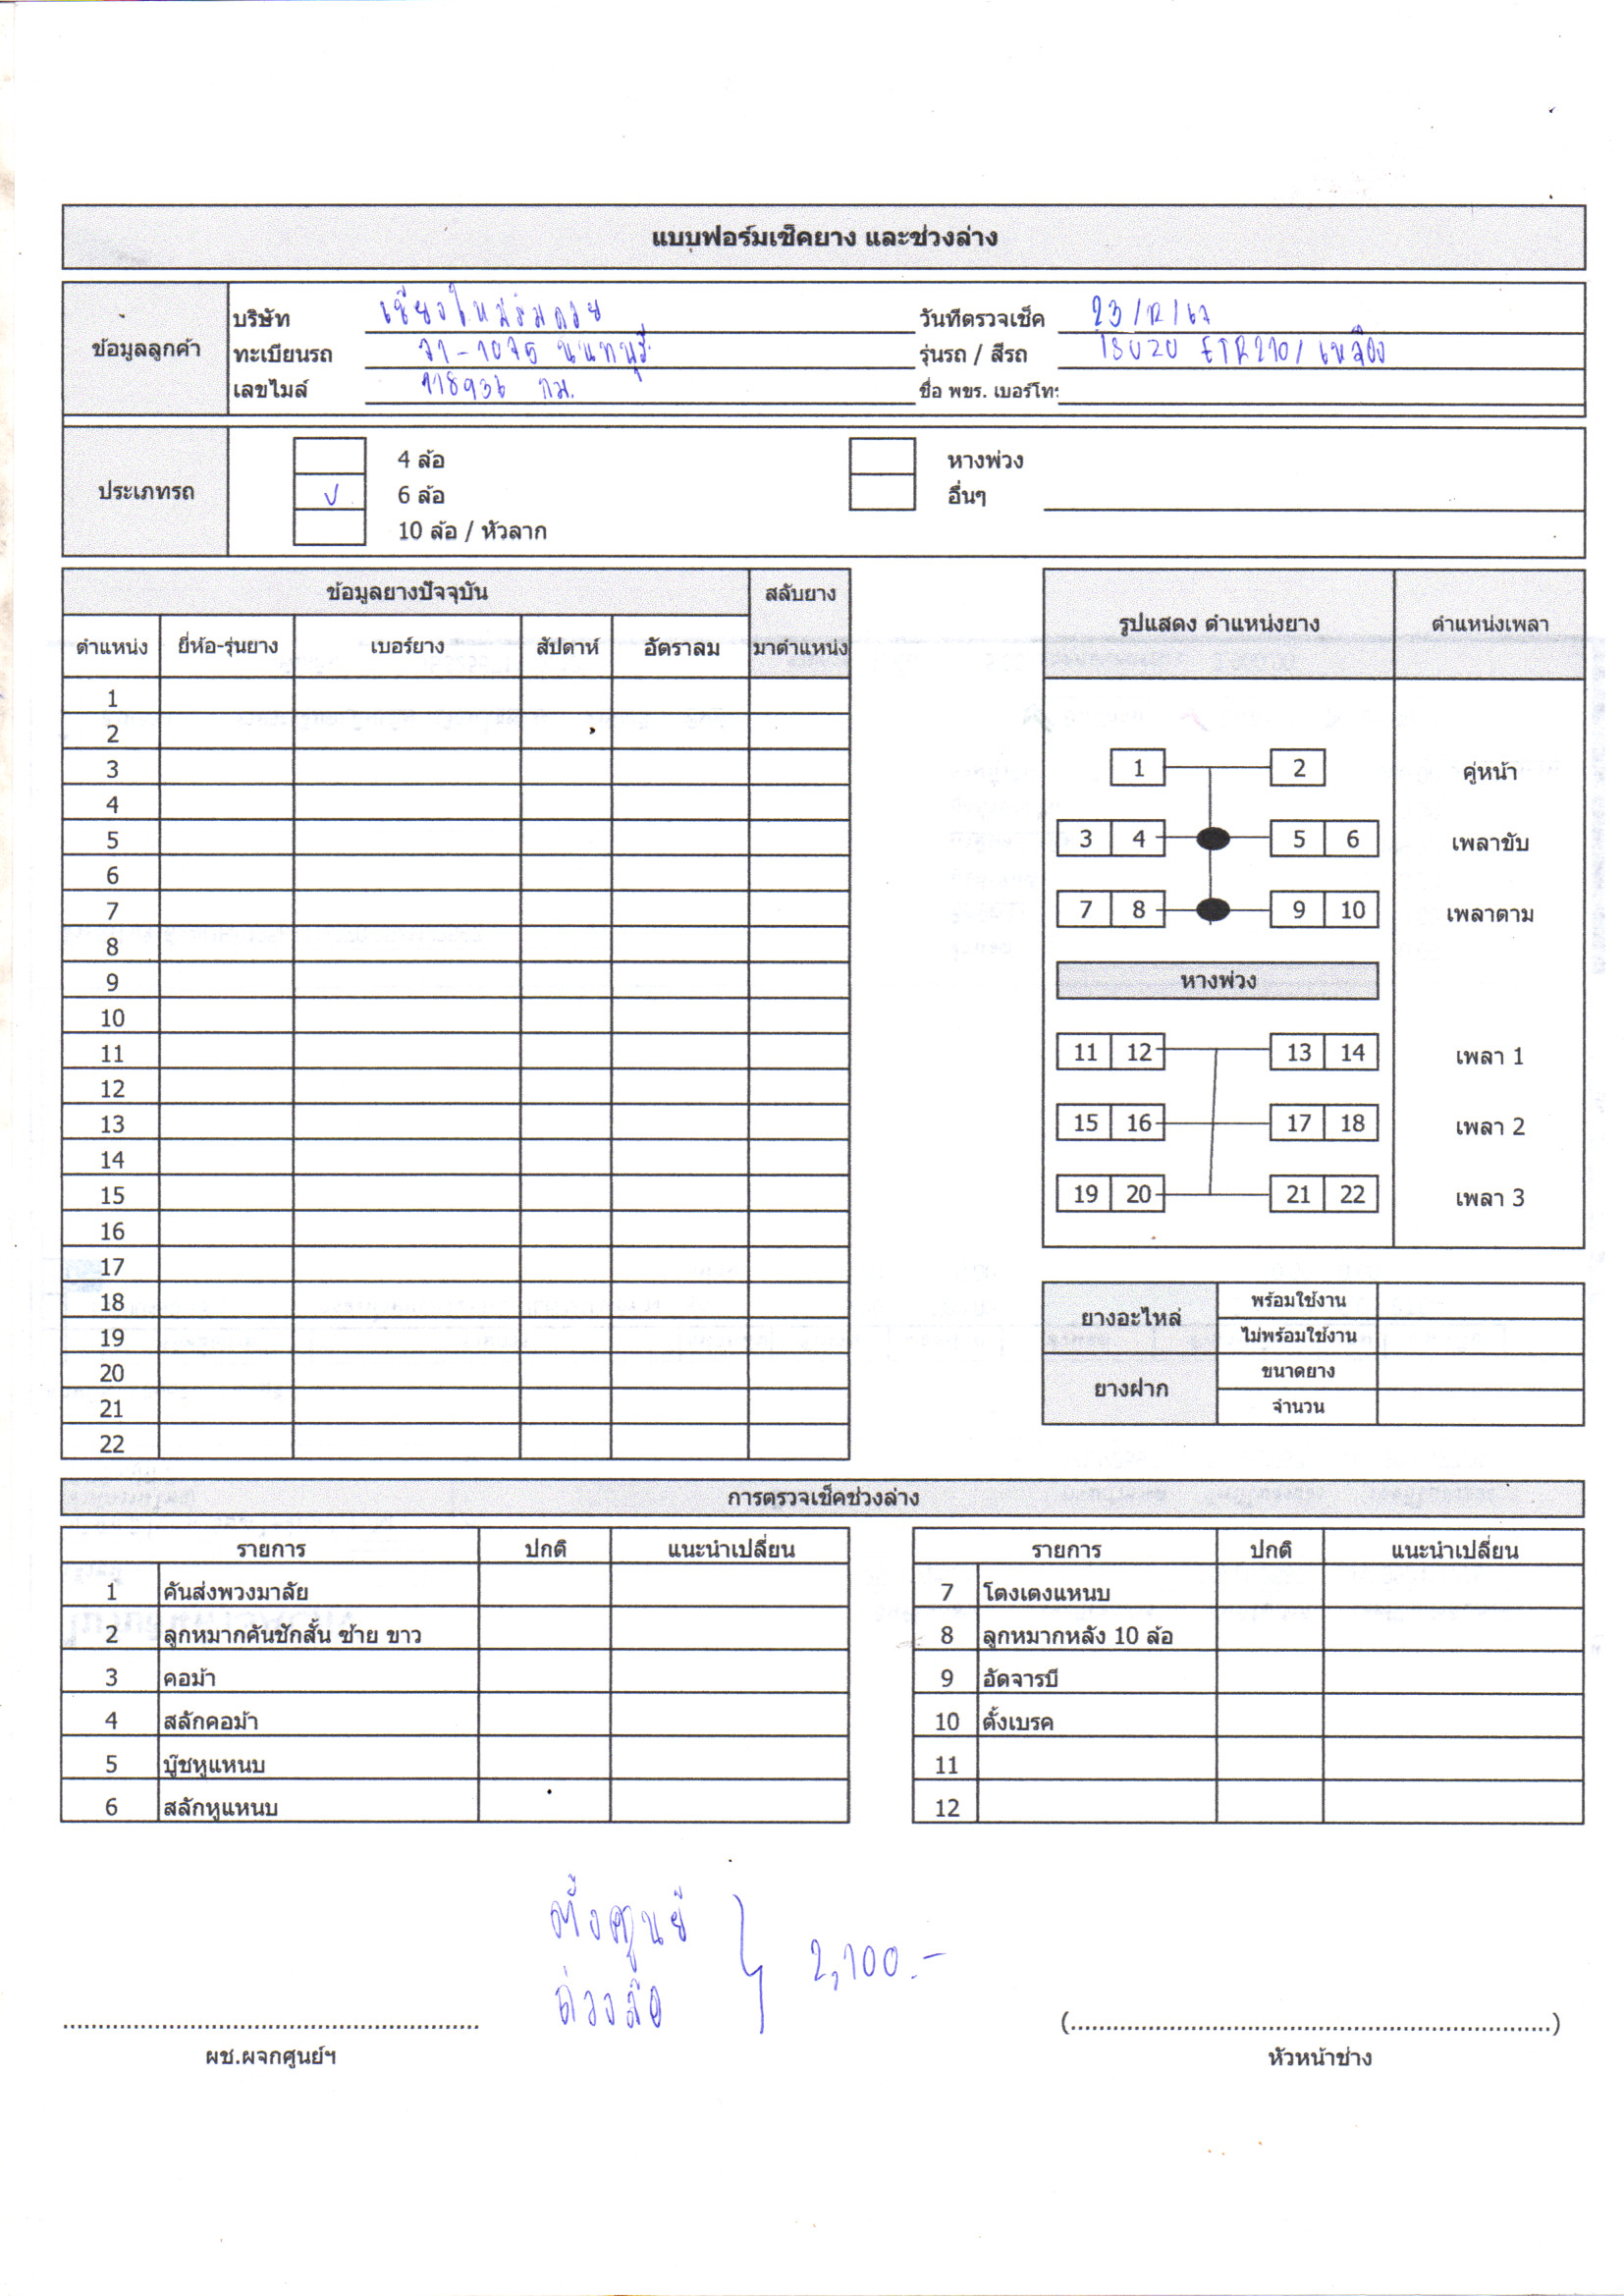 แบบฟอร์มเช็คยาง และช่วงล่าง
ข้อมูลลูกค้า
บริษัท เชียงใหม่ริมดอย วันที่ตรวจเช็ค 23/12/67
ทะเบียนรถ นนทบุรี รุ่นรถ / สีรถ ISUZU เหลือง
เลขไมล์ 118936 กม. ชื่อ พขร. เบอร์โทร
ประเภทรถ
4 ล้อ หางพ่วง
✓ 6 ล้อ อื่นๆ
10 ล้อ / หัวลาก
ข้อมูลยางปัจจุบัน สลับยาง
ตำแหน่ง ยี่ห้อ-รุ่นยาง เบอร์ยาง สัปดาห์ อัตราลม มาตำแหน่ง
1
2
3
4
5
6
7
8
9
10
11
12
13
14
15
16
17
18
19
20
21
22
รูปแสดง ตำแหน่งยาง ตำแหน่งเพลา
1 2 คู่หน้า
3 4 5 6 เพลาขับ
7 8 9 10 เพลาตาม
หางพ่วง
11 12 13 14 เพลา 1
15 16 17 18 เพลา 2
19 20 21 22 เพลา 3
ยางอะไหล่ พร้อมใช้งาน
ไม่พร้อมใช้งาน
ยางฝาก ขนาดยาง
จำนวน
การตรวจเช็คช่วงล่าง
รายการ ปกติ แนะนำเปลี่ยน
1 คันส่งพวงมาลัย
2 ลูกหมากคันชักสั้น ซ้าย ขาว
3 คอม้า
4 สลักคอม้า
5 บู๊ชหูแหนบ
6 สลักหูแหนบ
รายการ ปกติ แนะนำเปลี่ยน
7 โตงเตงแหนบ
8 ลูกหมากหลัง 10 ล้อ
9 อัดจารบี
10 ตั้งเบรค
11
12
ตั้งศูนย์
ถ่วงล้อ
2,100.-
ผช.ผจกศูนย์ฯ
(..........)
หัวหน้าช่าง